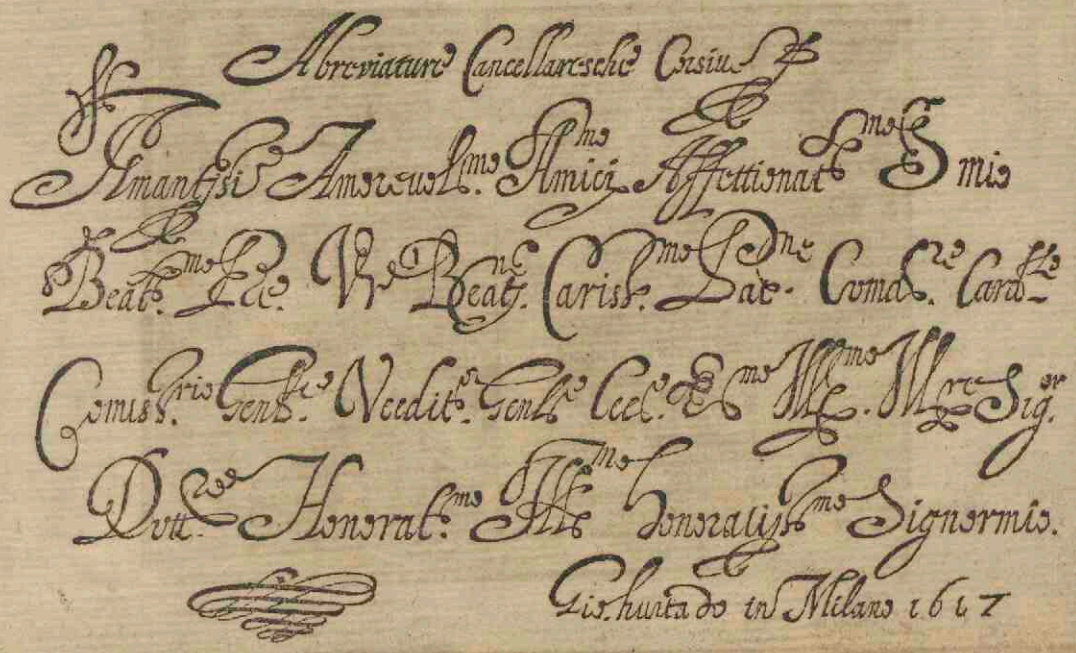 Abreviature Cancellaresche Corsiue
Amantissi.e Amoreuoliss.me Amici.me Affettionatiss.me S mio
Beatiss.me P.re V.re Beat.ne Cariss.me Comad.re
Comiss.rio Gen.le Veedit.e Gen.le Ecc.e Ill.me Sig.or
Dott.re Honorat.me Ill.me honoratiss.me Signormio.
Gio. hurtado in Milano 1617